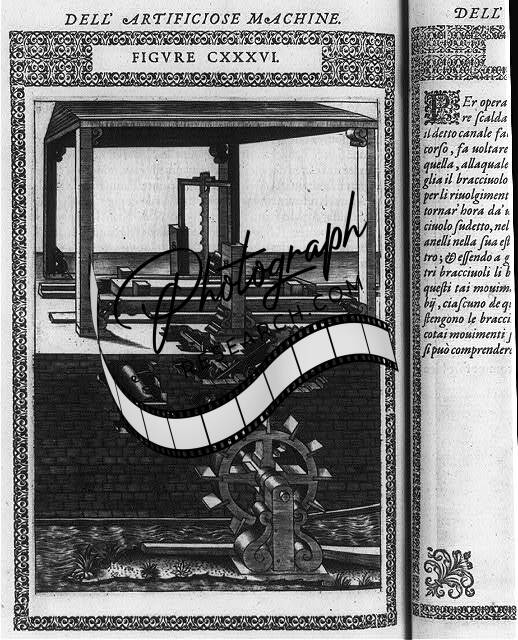 DELL' ARTIFICIOSE MACHINE.
FIGVRE CXXXVI.
Photograph
RESEARCH.COM
DELL'
PEr opera
re ſcalda
il detto canale fa
corſo, fa uoltare
quella, allaquale
glia il bracciuolo
per li riuolgiment
tornar' hora da'
ciuolo ſudetto, nel
anelli nella ſua eſt
tro; & eſſendo a g
tri bracciuoli li b
queſti tai mouim
bÿ, ciaſcuno de q
ſtengono le bracci
cotai mouimenti
ſi può comprendere